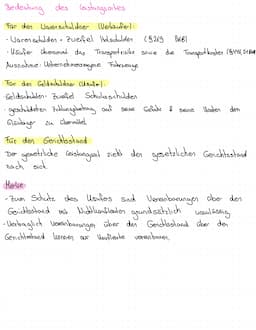 Bedeutung des Leistungsortes
Für den Warenschuldner (Verkäufer):
- Warenschulden = Zweifel Holschulden (§269 BGB)
- Käufer übernimmt das Transportrisiko sowie die Transportkosten (§446,
Ausnahme: Unternehmenseigene Fahrzeuge
Für den Geldschuldner (Käufer):
Geldschulden Zweifel Schickschulden
- geschuldeten Zahlungsbetrag auf seine Gefahr & seine Kosten den
Gläubiger zu übermitteln
Für den Gerichtsstand
Der gesetzliche Leistungsort zieht den gesetzlichen Gerichtsstand
nach sich.
Merke:
- Zum Schutz des Käufers sind Vereinbarungen über den
Gerichtsstand mit Nichtkaufleuten grundsätzlich unzulässig
- Vertraglich Vereinbarungen über den Gerichtsstand über den
Gerichtsstand können nur Kaufleute vereinbaren.